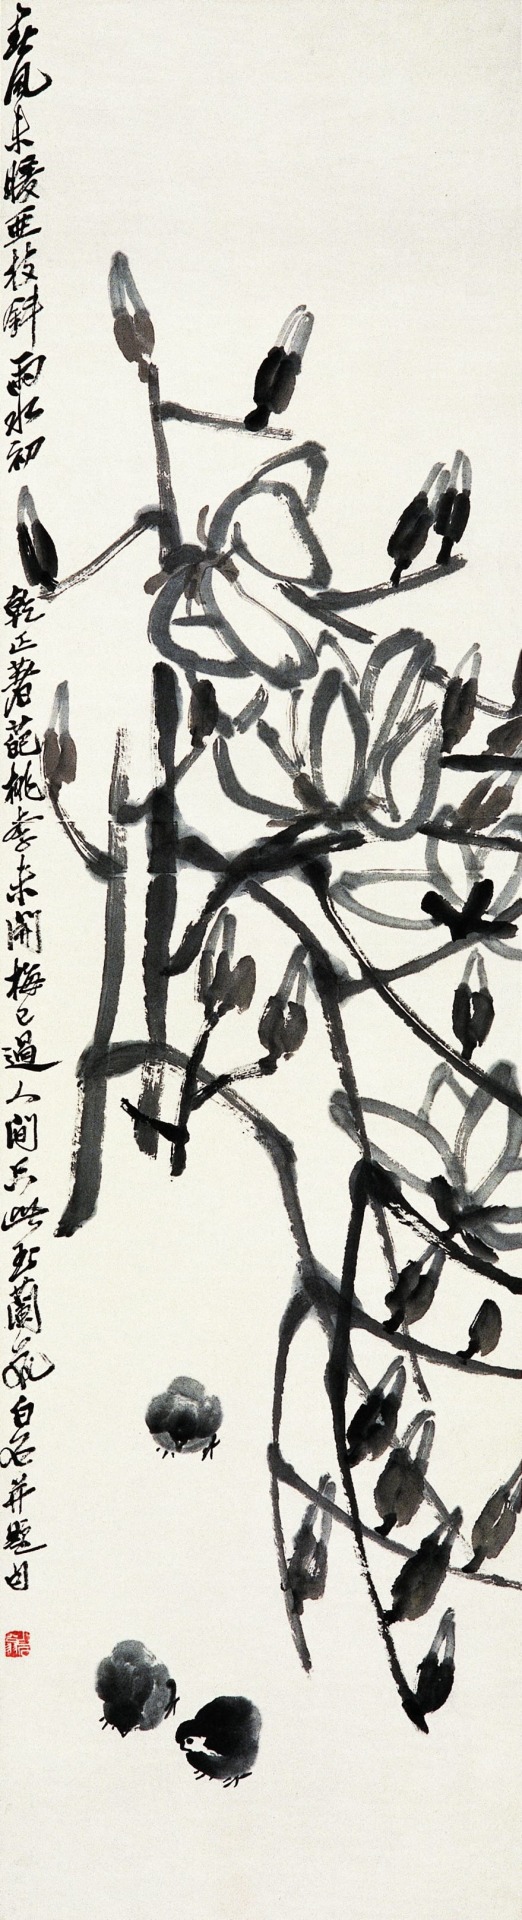 春風未暖亞枝斜雨水初乾正著葩桃李未開梅已過人間只此玉蘭花白石并題句